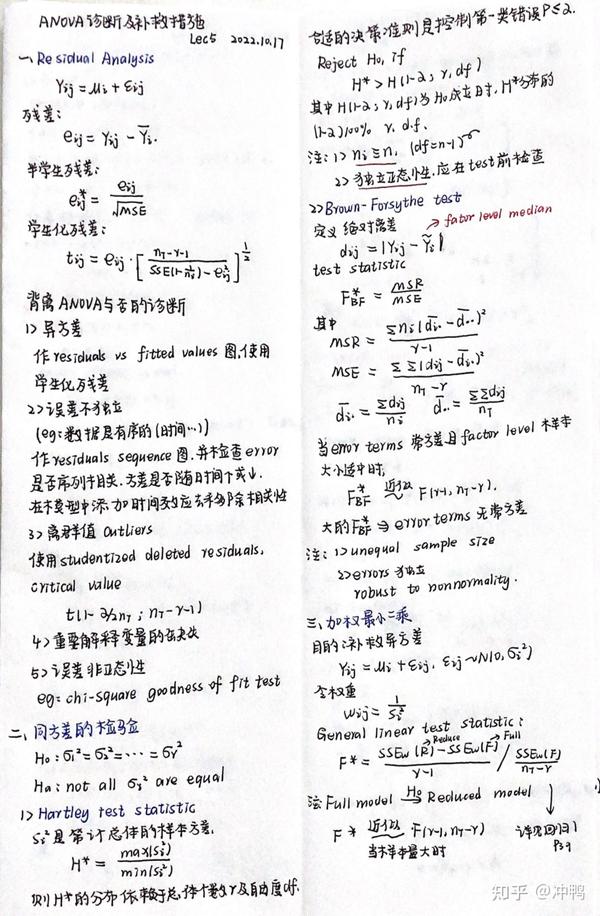 ANOVA诊断及补救措施
Lec5 2022.10.17
一、Residual Analysis
Yij = μi + εij
残差:
eij = Yij - Ȳi.
半学生残差:
eij* = eij / √MSE
学生化残差:
tij = eij · [ (nT-r-1) / (SSE(1-1/ni) - eij²) ]^(1/2)
背离ANOVA与否的诊断
1> 异方差
作residuals vs fitted values 图,使用
学生化残差
2> 误差不独立
(eg:数据是有序的(时间…))
作residuals sequence图.并检查error
是否序列相关.方差是否随时间↑或↓.
在模型中添加时间效应去移除相关性
3> 离群值 Outliers
使用studentized deleted residuals,
critical value
t(1-α/2nT ; nT-r-1)
4> 重要解释变量的缺失
5> 误差非正态性
eg: chi-square goodness of fit test
二、同方差的检验
H0: σ1² = σ2² = … = σr²
Ha: not all σr² are equal
1> Hartley test statistic
Si²是第i个总体的样本方差,
H* = max(Si²) / min(Si²)
则H*的分布依赖于总体个数r及自由度df.
合适的决策准则是控制第一类错误P≤α.
Reject H0, if
H* > H(1-α; r, df)
其中H(1-α; r, df)为H0成立时, H*分布的
(1-α)100% r. d.f.
注: 1> ni ≡ n, (df=n-1)
2> 独立正态性,应在test前检查
2> Brown-Forsythe test
定义绝对离差 → fator level median
dij = |Yij - Ỹi|
test statistic
F*BF = MSR / MSE
其中
MSR = Σni(d̄i. - d̄..)² / (r-1)
MSE = ΣΣ(dij - d̄i.)² / (nT-r)
d̄i. = Σdij / ni d̄.. = ΣΣdij / nT
当error terms 常方差且factor level 样本
大小适中时,
F*BF 近似~ F(r-1, nT-r).
大的F*BF ⇒ error terms 无常方差
注: 1> unequal sample size
2> errors 独立
robust to nonnormality.
三、加权最小二乘
目的:补救异方差
Yij = μi + εij, εij ~ N(0, σi²)
令权重
wij = 1 / Si²
General linear test statistic:
Reduce Full
F* = (SSEw(R) - SSEw(F)) / (r-1) / SSEw(F) / (nT-r)
注: Full model H0→ Reduced model
F* 近似~ F(r-1, nT-r) 详见回归1
当样本量大时 P39
知乎 @冲鸭